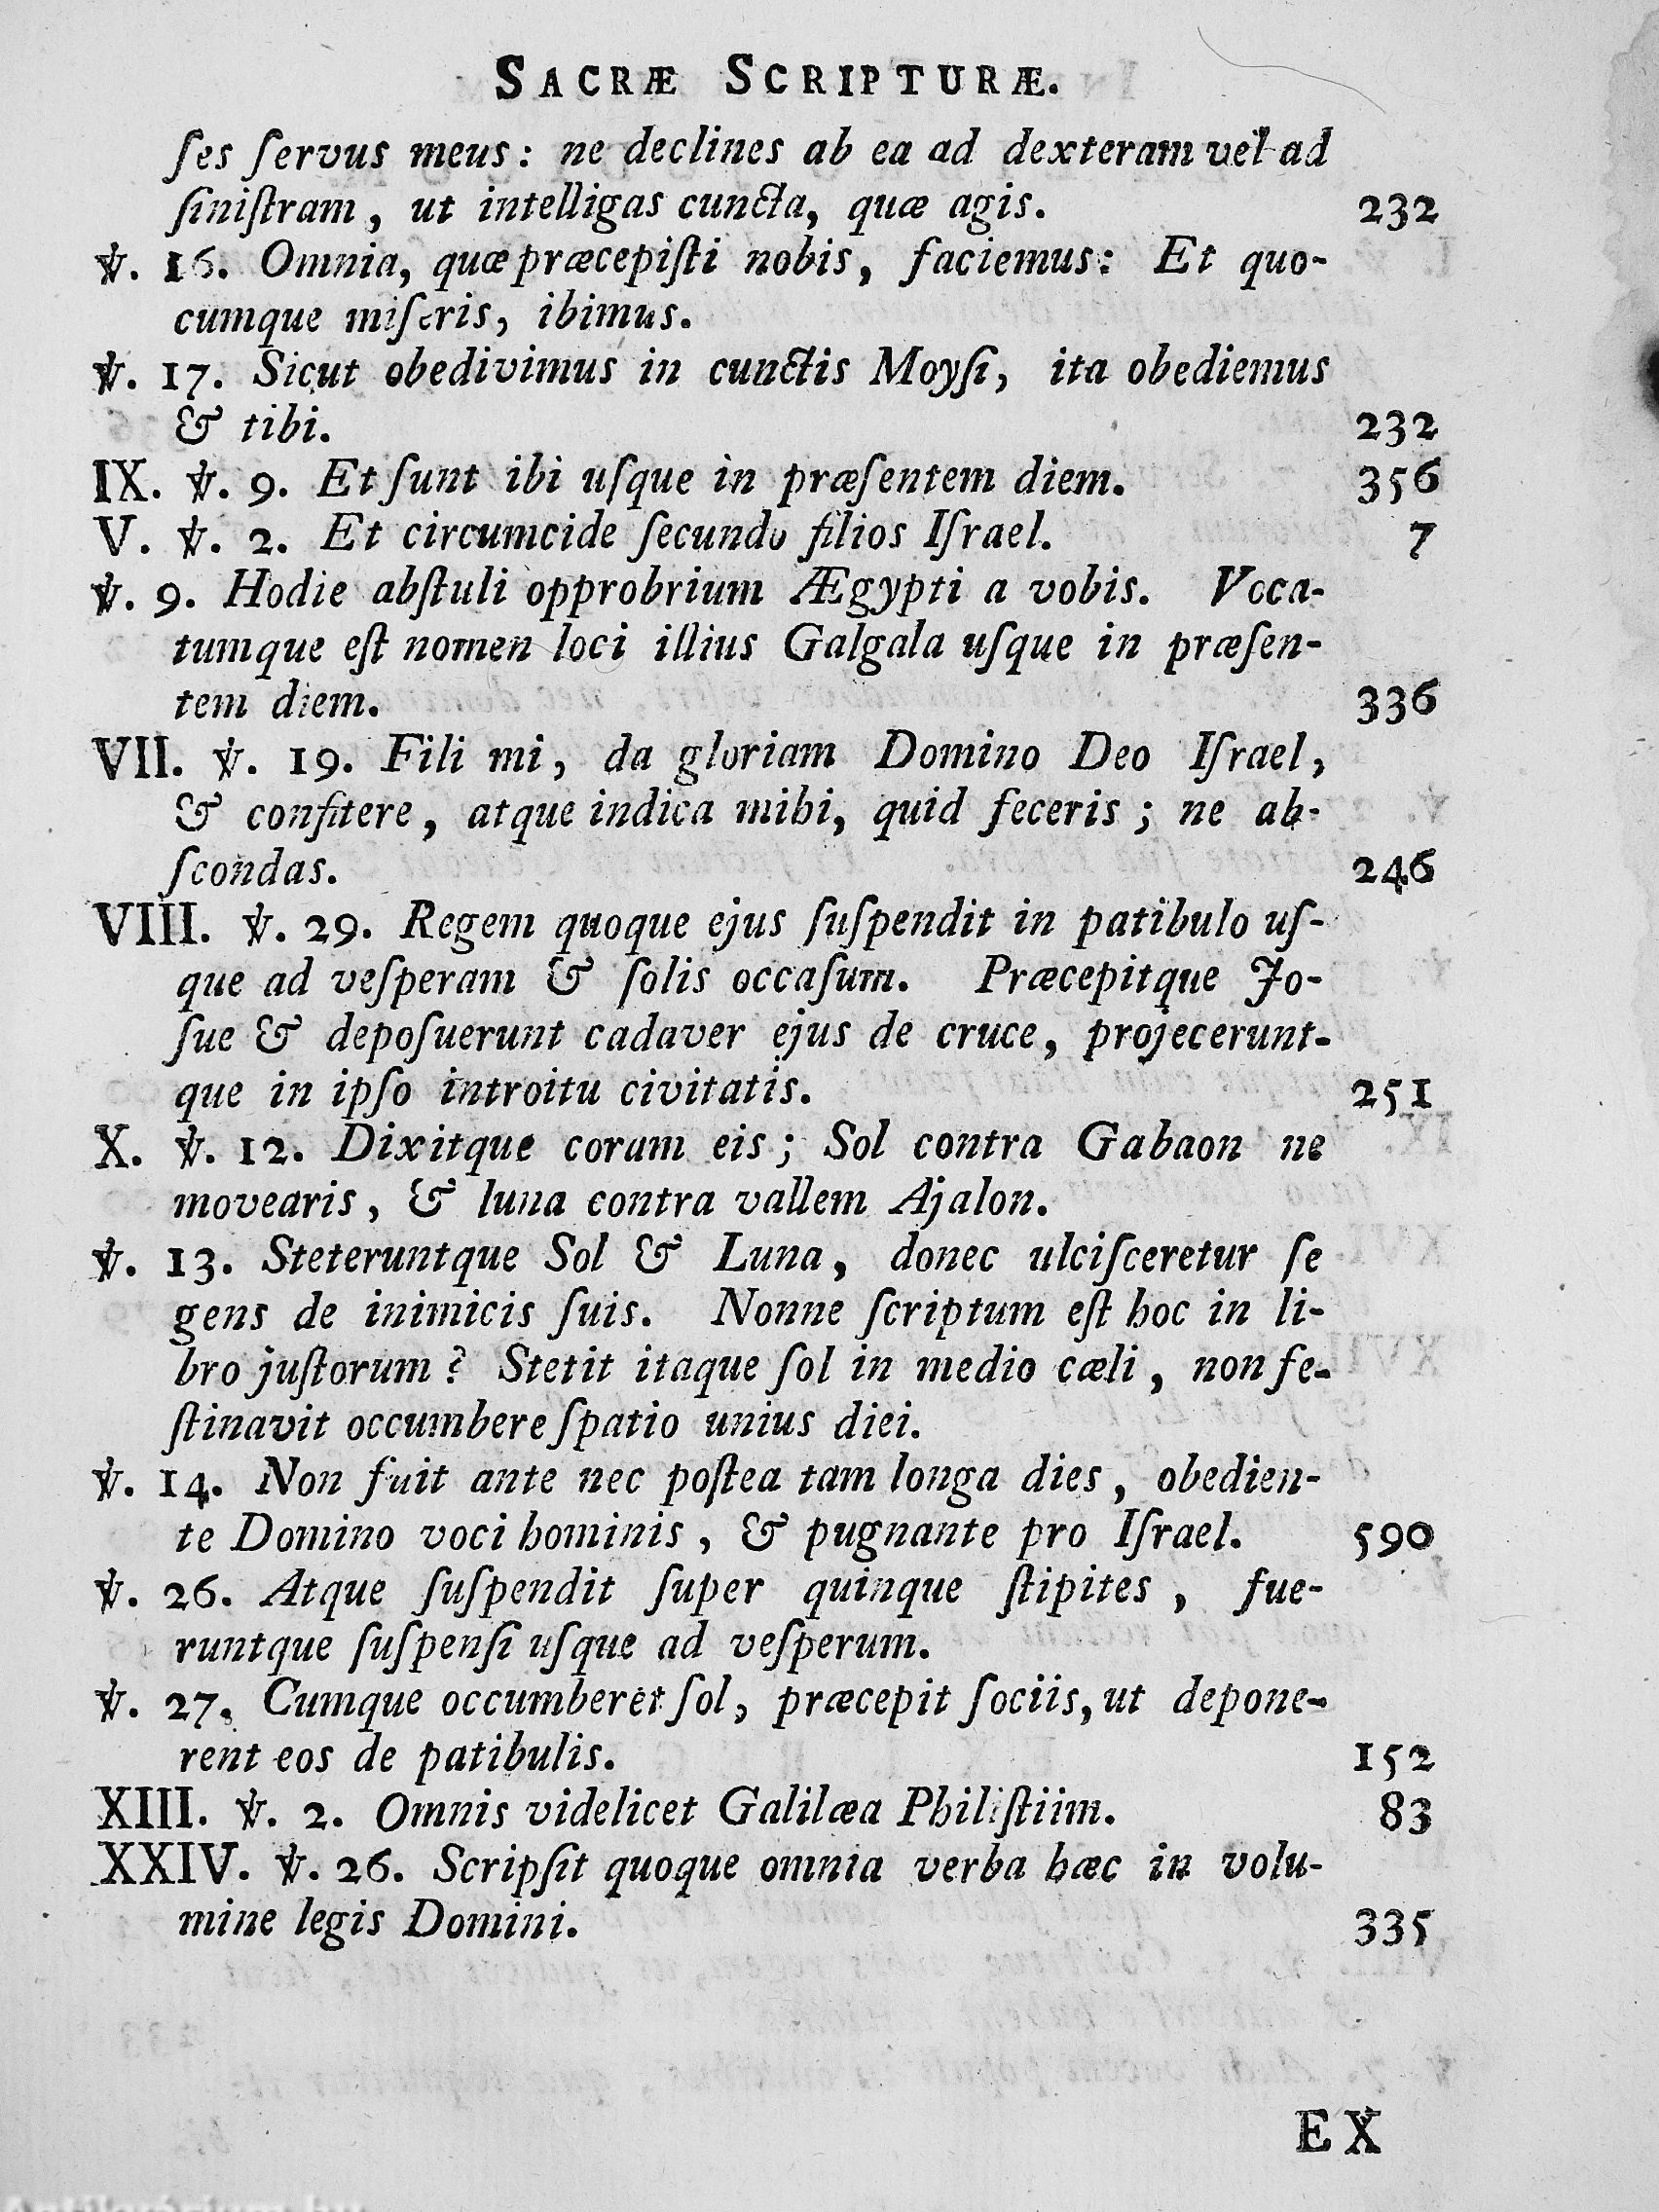 SACRÆ SCRIPTURÆ.
ſes ſervus meus: ne declines ab ea ad dexteram vel ad
ſiniſtram, ut intelligas cuncta, quæ agis. 232
℣. 16. Omnia, quæ præcepiſti nobis, faciemus: Et quo-
cumque miſeris, ibimus.
℣. 17. Sicut obedivimus in cunctis Moyſi, ita obediemus
& tibi. 232
IX. ℣. 9. Et ſunt ibi uſque in præſentem diem. 356
V. ℣. 2. Et circumcide ſecundo filios Iſrael. 7
℣. 9. Hodie abſtuli opprobrium Ægypti a vobis. Voca-
tumque eſt nomen loci illius Galgala uſque in præſen-
tem diem. 336
VII. ℣. 19. Fili mi, da gloriam Domino Deo Iſrael,
& confitere, atque indica mihi, quid feceris; ne ab-
ſcondas. 246
VIII. ℣. 29. Regem quoque ejus ſuſpendit in patibulo uſ-
que ad veſperam & ſolis occaſum. Præcepitque Jo-
ſue & depoſuerunt cadaver ejus de cruce, projecerunt-
que in ipſo introitu civitatis. 251
X. ℣. 12. Dixitque coram eis; Sol contra Gabaon ne
movearis, & luna contra vallem Ajalon.
℣. 13. Steteruntque Sol & Luna, donec ulciſceretur ſe
gens de inimicis ſuis. Nonne ſcriptum eſt hoc in li-
bro juſtorum? Stetit itaque ſol in medio cæli, non fe-
ſtinavit occumbere ſpatio unius diei.
℣. 14. Non fuit ante nec poſtea tam longa dies, obedien-
te Domino voci hominis, & pugnante pro Iſrael. 590
℣. 26. Atque ſuſpendit ſuper quinque ſtipites, fue-
runtque ſuſpenſi uſque ad veſperum.
℣. 27. Cumque occumberet ſol, præcepit ſociis, ut depone-
rent eos de patibulis. 152
XIII. ℣. 2. Omnis videlicet Galilæa Philiſtiim. 83
XXIV. ℣. 26. Scripſit quoque omnia verba hæc in volu-
mine legis Domini. 335
EX